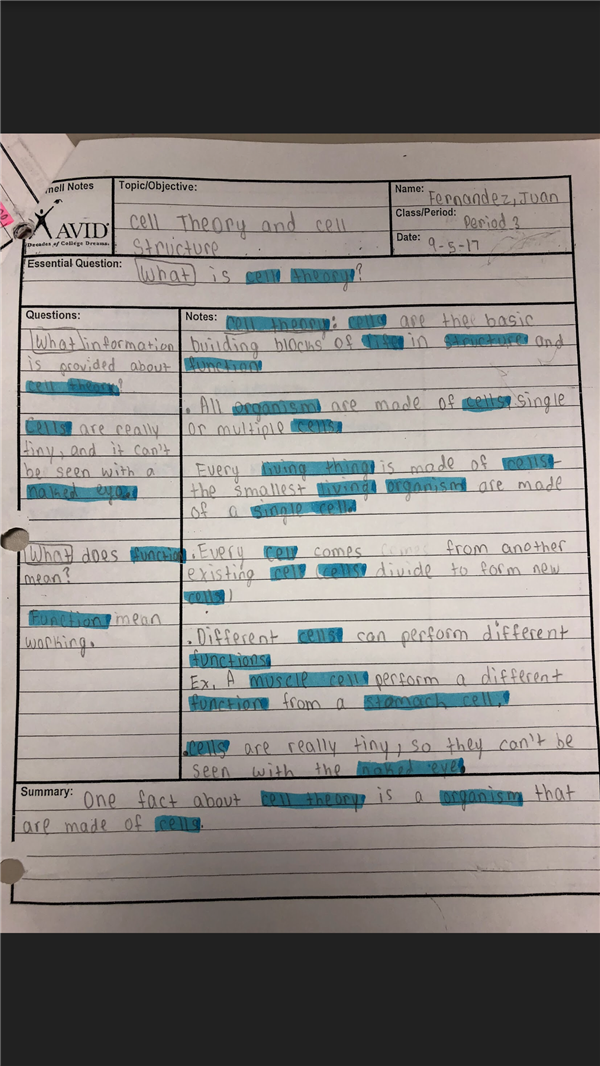 nell Notes
AVID
Decades of College Dreams.
Topic/Objective:
Cell Theory and cell
Structure
Name: Fernandez, Juan
Class/Period: Period 3
Date: 9-5-17
Essential Question: What is cell theory?
Questions:
What information
is provided about
cell theory?
Cells are really
tiny, and it can't
be seen with a
naked eye.
What does function
mean?
Function mean
working.
Notes: cell theory: cells are the basic
building blocks of life in structure and
function
. All organism are made of cells, single
or multiple cells.
Every living thing is made of cells-
the smallest living organism are made
of a single cell.
. Every cell comes from another
existing cell cells divide to form new
cells!
. Different cells can perform different
functions.
Ex. A muscle cell perform a different
function from a stomach cell.
. cells are really tiny, so they can't be
seen with the naked eye.
Summary: One fact about cell theory is a organism that
are made of cells.